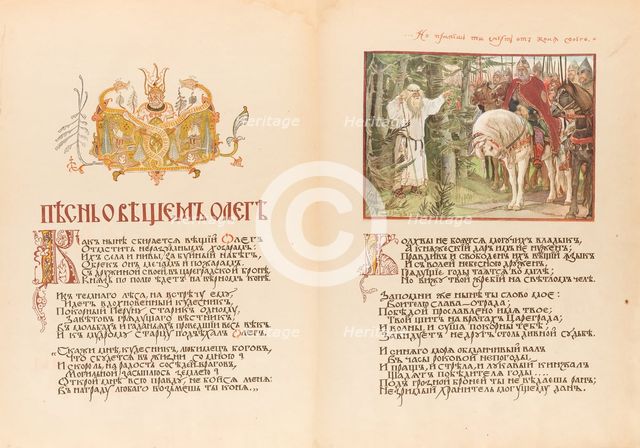 ПѢСНЬ О ВѢЩЕМЪ ОЛЕГѢ
Какъ нынѣ сбирается вѣщій Олегъ
Отмстить неразумнымъ хозарамъ:
Ихъ села и нивы за буйный набѣгъ
Обрекъ онъ мечамъ и пожарамъ.
Съ дружиной своей, въ цареградской бронѣ,
Князь по полю ѣдетъ на вѣрномъ конѣ.
Изъ темнаго лѣса, на встрѣчу ему,
Идетъ вдохновенный кудесникъ,
Покорный Перуну старикъ одному,
Завѣтовъ грядущаго вѣстникъ,
Въ мольбахъ и гаданьяхъ проведшій весь вѣкъ.
И къ мудрому старцу подъѣхалъ Олегъ.
"Скажи мнѣ, кудесникъ, любимецъ боговъ,
Что сбудется въ жизни со мною?
И скоро ль, на радость сосѣдей-враговъ,
Могильной засыплюсь землею?
Открой мнѣ всю правду, не бойся меня:
Въ награду любаго возьмешь ты коня..."
...Но примешь ты смерть отъ коня своего.
Волхвы не боятся могучихъ владыкъ,
А княжескій даръ имъ не нуженъ;
Правдивъ и свободенъ ихъ вѣщій языкъ
И съ волей небесною друженъ.
Грядущіе годы таятся во мглѣ;
Но вижу твой жребій на свѣтломъ челѣ.
Запомни же нынѣ ты слово мое:
Воителю слава — отрада;
Побѣдой прославлено имя твое;
Твой щитъ на вратахъ Цареграда;
И волны, и суша покорны тебѣ;
Завидуетъ недругъ столь дивной судьбѣ.
И синяго моря обманчивый валъ
Въ часы роковой непогоды,
И пращъ, и стрѣла, и лукавый кинжалъ
Щадятъ побѣдителя годы....
Подъ грозной броней ты не вѣдаешь ранъ;
Незримый хранитель могущему данъ.
Heritage
Heritage
Heritage
Heritage
C